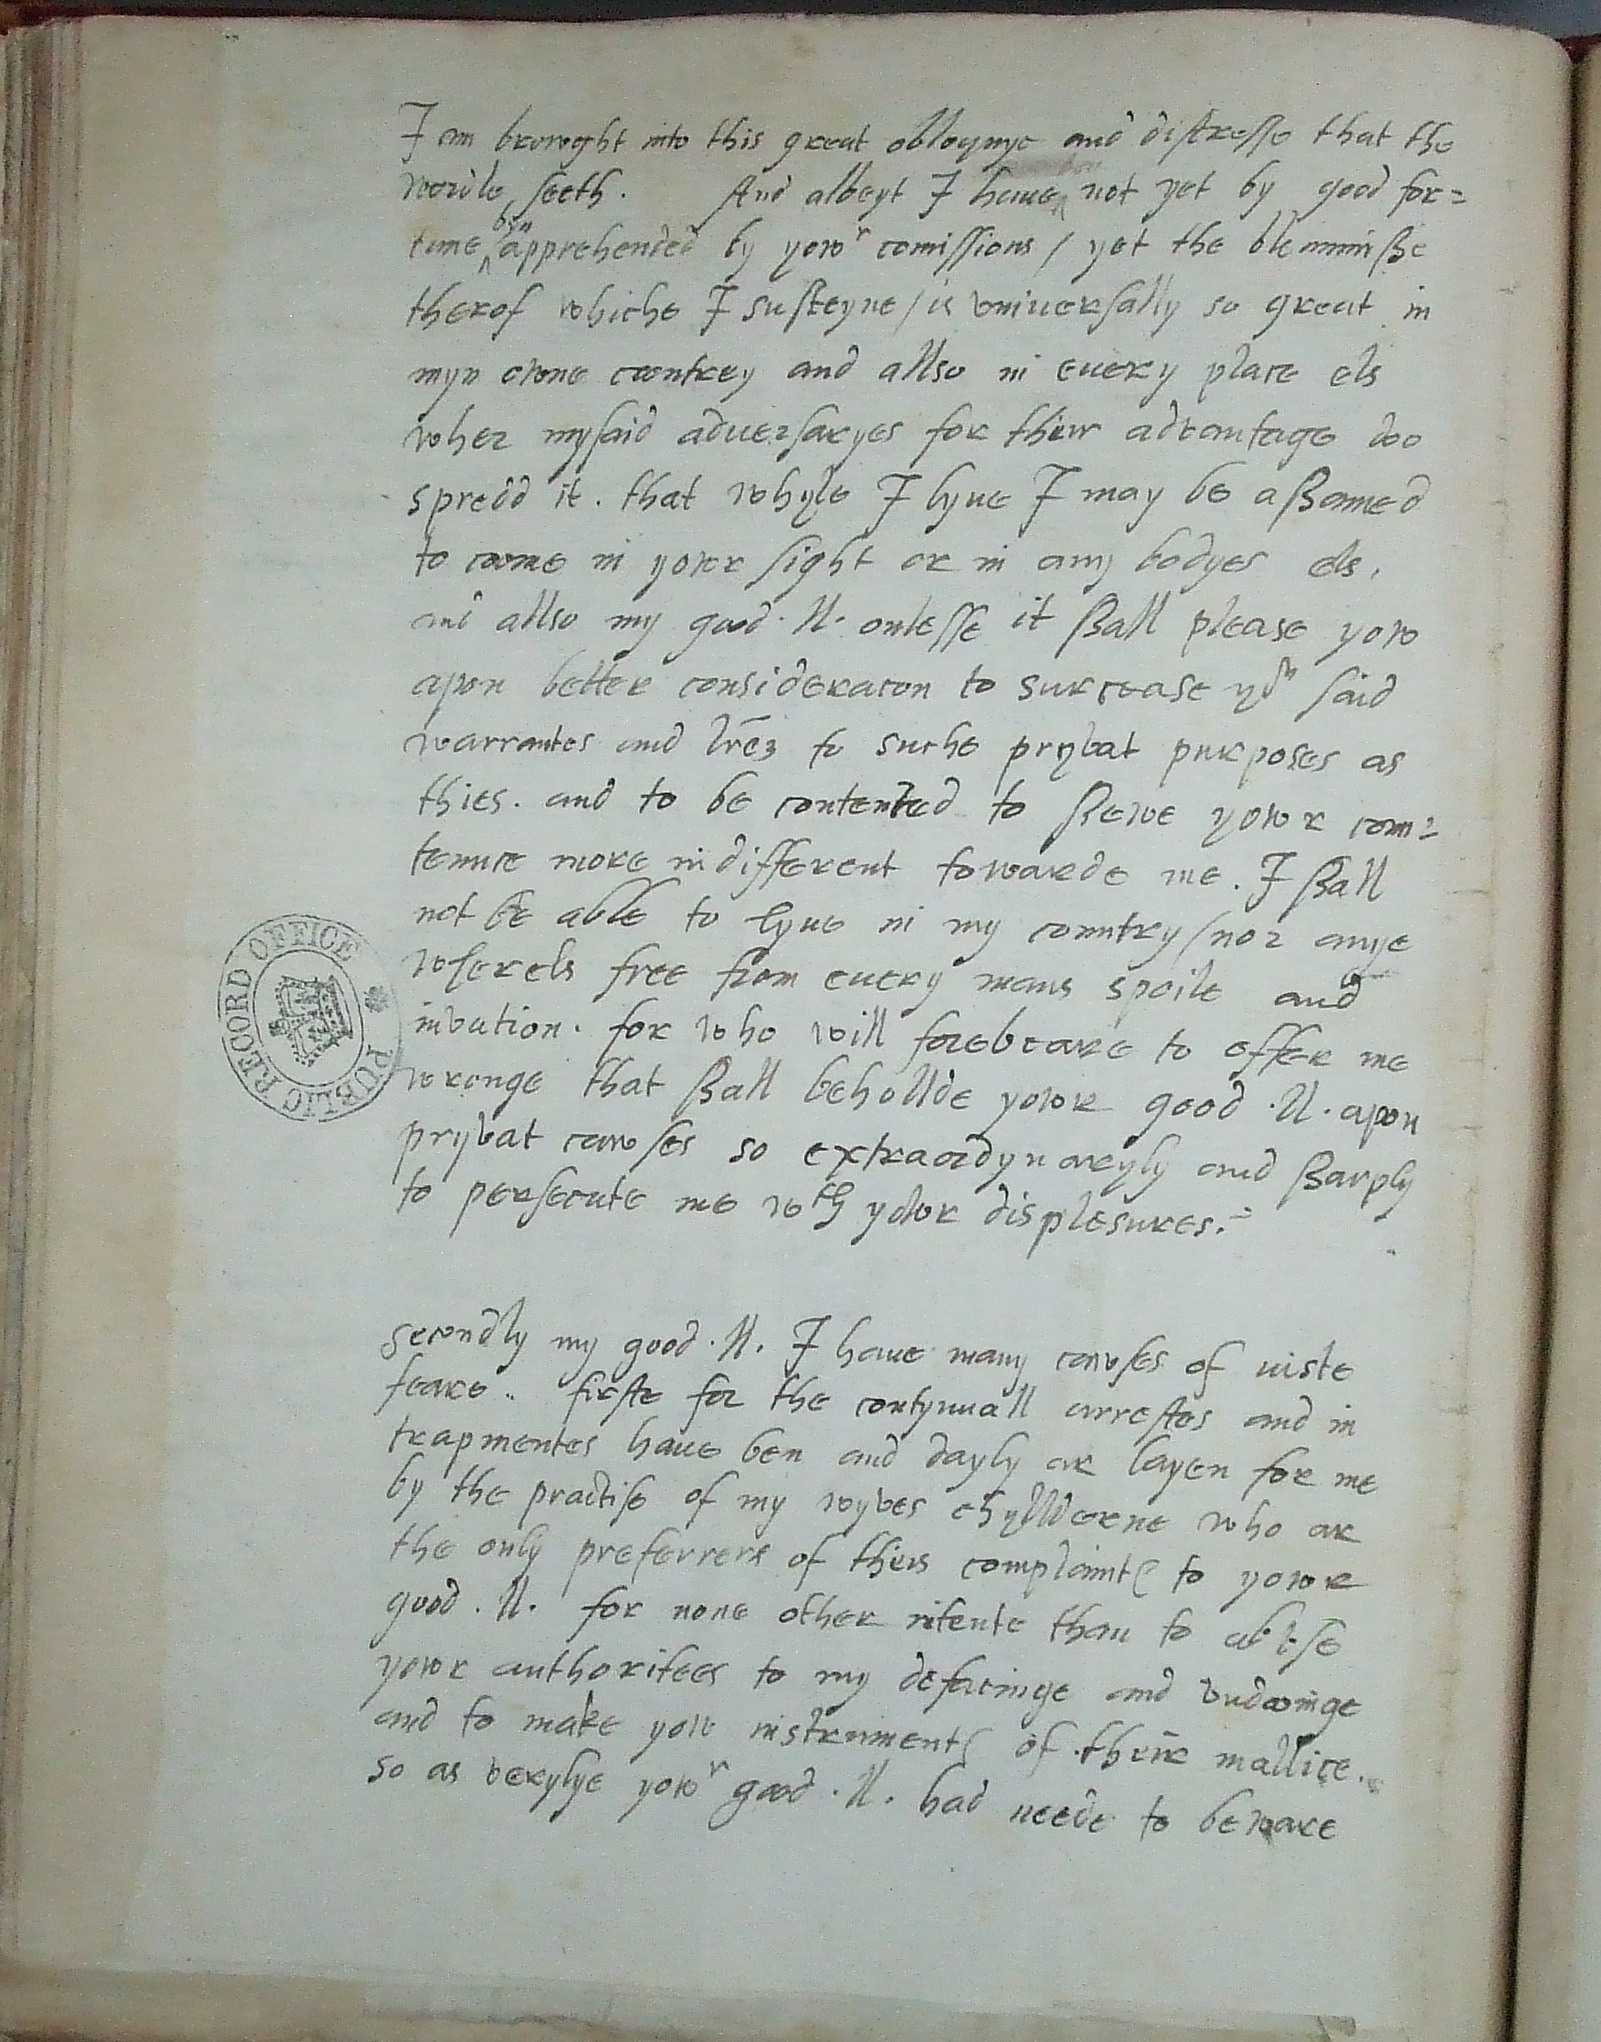 I am browght into this great obloqnye and distresse that the
worlde seeth. And albeyt I haue not yet by good for=
tune ben apprehended by yowr comissions / yet the blemmishe
therof whiche I susteyne / is vniuersally so great in
myn owne countrey and allso in euery place els
wher mysaid aduersaryes for their advantage doo
spredd it. that whyle I lyue I may be ashamed
to come in yowr sight or in any bodyes els.
and allso my good .ll. onlesse it shall please yow
apon better consideracon to surcease yor said
warrantes and lrez to suche pryvat purposes as
thies. and to be contented to shewe yowr coun=
tennce more indifferent towarde me. I shall
not be able to lyue in my countrey / nor anye
wherels free from euery mans spoile and
invation. for who will forebeare to offer me
wronge that shall behollde yowr good .ll. apon
pryvat cawses so extraordynaryly and sharply
to persecute me wth yowr displesures.=
PUBLIC RECORD OFFICE
Secondly my good .ll. I haue many cawses of iuste
feare.. firste for the contynuall arrestes and in
trapmentes haue ben and dayly ar layen for me
by the practise of my wyves chyllderne who ar
the only preferrers of theis complaintes to yowr
good .ll. for none other intente than to abvse
yowr authoritees to my defacinge and vndooinge
and to make yow instrumentes of their mallice.
so as verylye yowr good .ll. had neede to beware